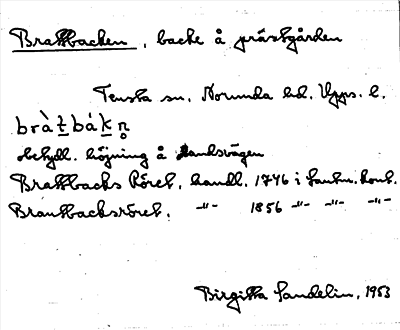 Brattbacken, backe å prästgården
Tensta sn. Norunda hd. Upps. l.
bràt̠bák̠n̥
obetydl. höjning å landsvägen
Brattbacks Röret, handl. 1746 i Lantm.kont.
Brantbacksröret, -"- 1856 -"- -"- -"-
Birgitta Sandelin, 1953